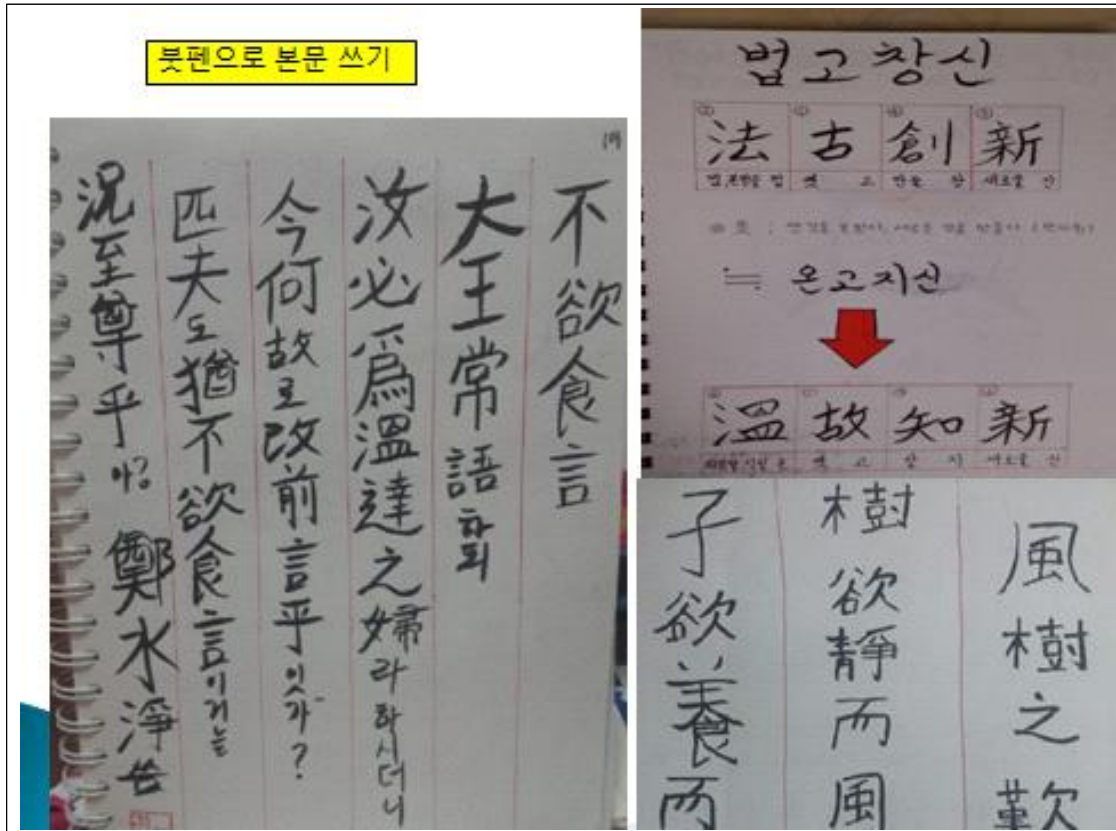 붓펜으로 본문 쓰기
不欲食言
大王常語하되
汝必爲溫達之婦라하시더니
今何故로改前言乎잇가?
匹夫도猶不欲食言이거늘
況至尊乎아? 鄭水淨 씀
법고창신
法 古 創 新
법,본받을 법 옛 고 만들 창 새로울 신
≒ 온고지신
溫 故 知 新
옛 고 알 지 새로울 신
風樹之歎
樹欲靜而風
子欲養而